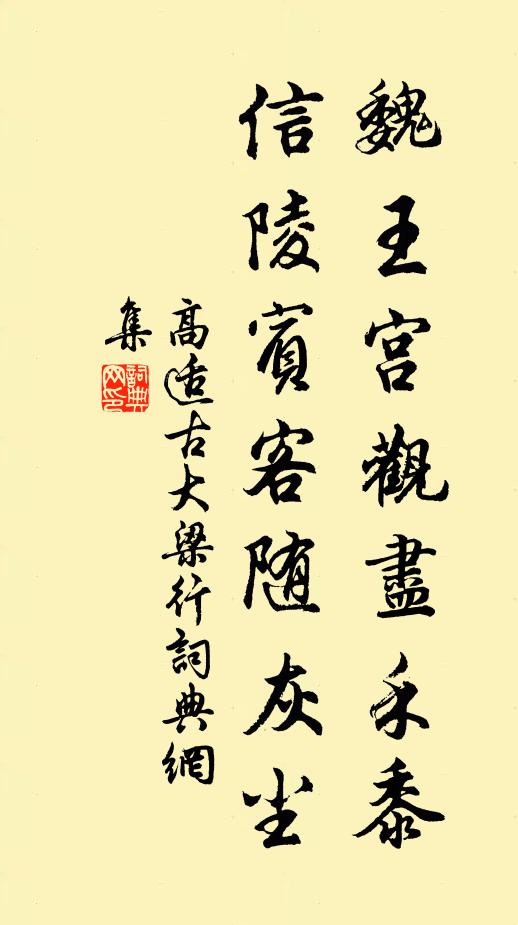 魏王宫觀盡禾黍
信陵賓客随灰尘
高适古大梁行詞典網
集
詞典
网印